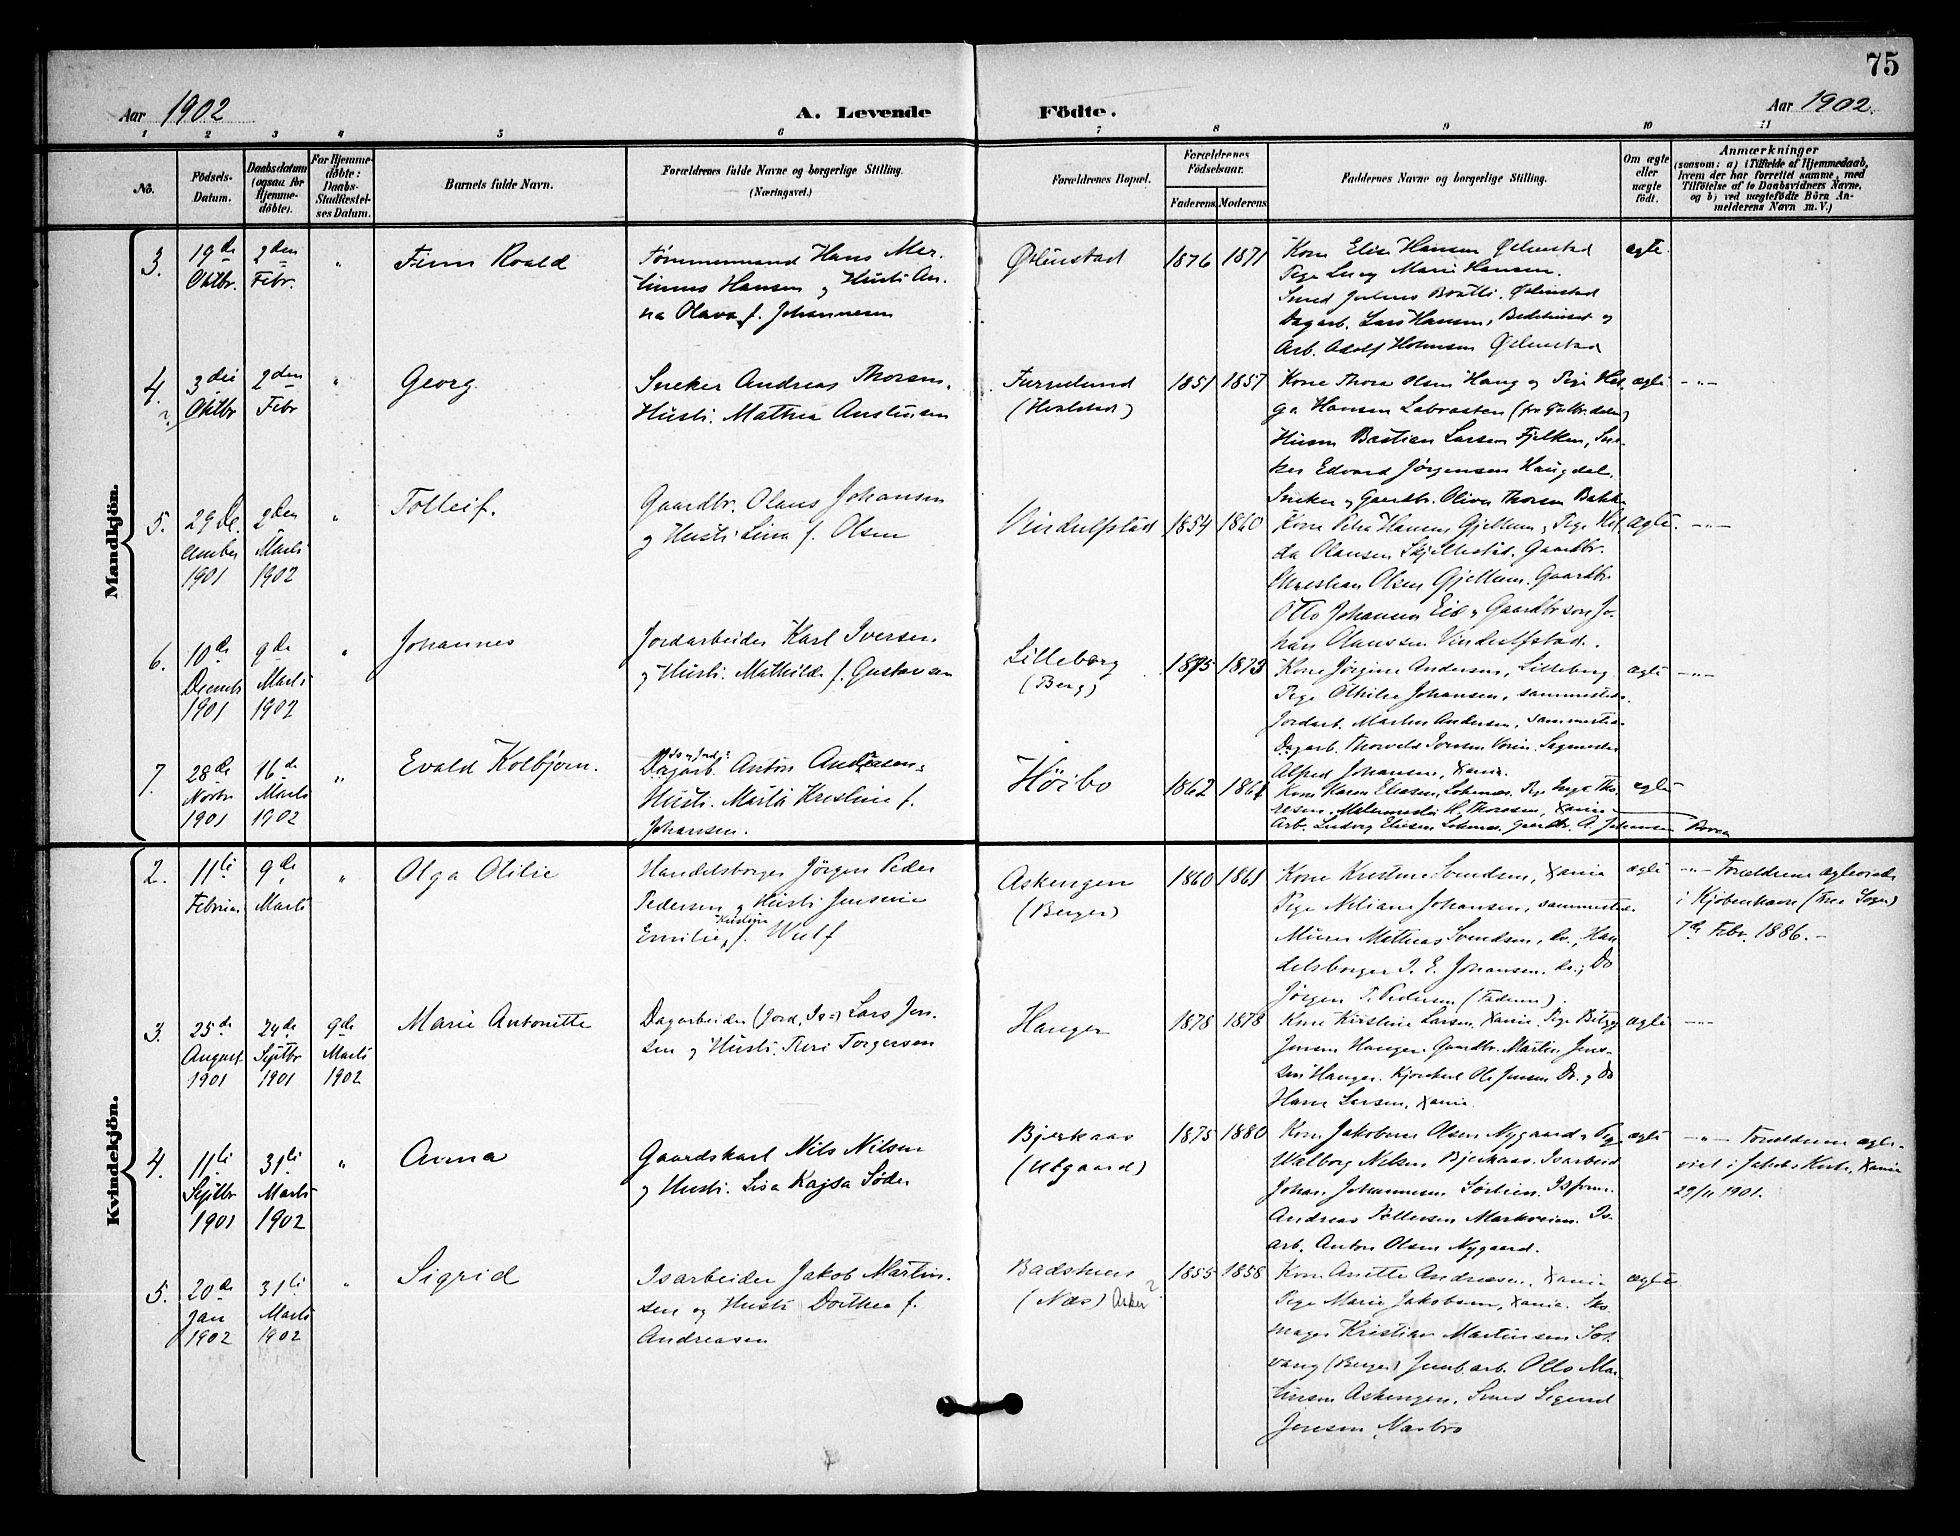 75
Aar 1902
A. Levende Födte.
Aar 1902.
1 2 3 4 5 6 7 8 9 10 11
No.
Födsels-
Datum.
Daabsdatum
(ogsaa for
Hjemme-
döbte).
For Hjemme-
döbte:
Daabs-
Stadfæstel-
ses Datum.
Barnets fulde Navn.
Forældrenes fulde Navne og borgerlige Stilling.
(Næringsvei.)
Forældrenes Bopæl.
Forældrenes
Födselsaar.
Faderens. Moderens.
Faddernes Navne og borgerlige Stilling.
Om ægte
eller
uægte
födt.
Anmærkninger
(saasom: a) i Tilfælde af Hjemmedaab,
hvem der har forrettet samme, med
Tilföielse af to Daabsvidners Navne,
og b) ved uægtefödte Börn An-
melderens Navn m. V.)
Mandkjön.
3.
19de
Oktbr.
2den
Febr.
"
Finn Roald
Tømmermand Hans Mar-
tinius Hansen og Hustr. An-
na Olava f. Johannesen
Ølenstad
1876 1871
Kone Elise Hansen Ølenstad
Pige Lucy Marie Hansen.
Smed Julius Bratli. Ølenstad
Dagarb. Lars Hansen, Bedehuset og
Arb. Adolf Holmsen Ølenstad
ægte
4.
?
3die
Oktbr
2den
Febr
"
Georg
Sneker Andreas Thorsen,
Hustr. Mathea Anstensen
Furuelund
(Hvalstad)
1851 1857
Kone Thora Olsen Haug og Pige Hel-
ga Hansen Labraaten (fra Gulbr.dalen)
Husm Bastian Larsen Fjelken, Sne-
ker Edvard Jørgensen Haugdal.
Sneker og Gaardbr. Oliver Thorsen Bakke
ægte
-"-
5.
29 De-
cember
1901
2den
Marts
1902
"
Tolleif.
Gaardbr. Olaus Johansen
og Hustr. Lina f. Olsen
Vindulfstad
1854 1860
Kone Petra Hansen Gjellum og Pige Hil-
da Olausen Skjellestad. Gaardbr.
Christian Olsen Gjellum. Gaardbr
Otto Johannes Eid og Gaardbrsøn Jo-
han Olaussen Vindulfstad.
ægte.
-"-
6.
10de
Decembr
1901
9de
Marts
1902
"
Johannes
Jordarbeider Karl Iversen
og Hustr. Mathilde f. Gustavsen
Lilleborg
(Berg)
1875 1873
Kone Jørgine Andersen, Lilleborg
Pige Othilie Johansen, sammested.
Jordarb. Martin Andersen, sammested.
Dagarb. Thorvald Iversen Voien. Sagmester
Alfred Johansen, Xania.
ægte
-"-
7.
28de
Novbr
1901
16de
Marts
1902
"
Evald Kolbjørn.
Dagarb. Anton Andreasen,
Hustr. Marta Kristine f.
Johansen.
Høibo
1862 1861
Kone Karen Eliasen, Pige Inga Tho-
resen, H. Thoresen, Xania
Arb. Ludvig Eliasen, Gaardbr. A. Johansen
ægte
Kvindekjön.
2.
11te
Februar
9de
Marts
"
Olga Otilie
Handelsborger Jørgen Peder
Pedersen og Hustr. Jensine
Emilie Kristine f. Wulf
Askengen
(Berger)
1860 1861
Kone Kristine Svendsen, Xania
Pige Niliane Johansen, sammested.
Murer Mathias Svendsen, do., Han-
delsborger J. E. Johansen. do.; Do
Jørgen P. Pedersen (Faderen).
ægte
-"- Forældrene ægteviede
i Kjøbenhavn (Free Sogn)
7de Febr. 1886.-
3.
25de
August
1901
24de
Septbr
1901
9de
Marts
1902
Marie Antonette
Dagarbeider (Jord, Is-) Lars Jen-
sen og Hustr. Turi Torgersen
Hanger
1878 1878
Kone Kirstine Larsen, Xania. Pige Betzy
Jensen Hanger. Gaardbr. Martin Jens-
sen Hanger. Kjørekarl Ole Jensen Do. og Do
Hans Larsen, Xania.
ægte
-"-
4.
11te
Septbr
1901
31te
Marts
1902
"
Anna
Gaardskarl Nils Nilsen
og Hustr. Lisa Kajsa Söder
Bjerkaas
(Udgaard)
1875 1880
Kone Jakobine Olsen Nygaard og Pige
Walborg Nilsen Bjerkaas. Isarbeid.
Johan Johannesen Sørlien. Isform.
Andreas Pettersen Markveien. Is-
arb. Anton Olsen Nygaard.
ægte
-"- Forældrene ægte-
viet i Jakobs Kirke, Xania
29/11 1901.
5.
20de
Jan
1902
31te
Marts
1902
"
Sigrid
Isarbeider Jakob Martin-
sen og Hustr. Dorthea f.
Andreasen
Badstuen
(Næs) Asker?
1855 1858
Kone Anette Andreasen, Xania
Pige Marie Jakobsen, Xania. Sko-
mager Kristian Martinsen Sol-
vang (Berger) Jernb.arb. Otto Mar-
tinsen Askengen, Smed Sigurd
Jensen Næsbro
ægte